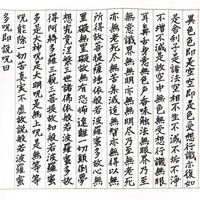 異色色即是空空即是色受想行識亦復如
是舍利子是諸法空相不生不滅不垢不淨
不增不減是故空中無色無受想行識無眼
耳鼻舌身意無色声香味觸法無眼界乃至
無意識界無無明亦無無明尽乃至無老死
亦無老死尽無苦集滅道無智亦無得以無
所得故菩提薩埵依般若波羅蜜多故心無
罣礙無罣礙故無有恐怖遠離一切顛倒夢
想究竟涅槃三世諸佛依般若波羅蜜多故
得阿耨多羅三藐三菩提故知般若波羅蜜
多是大神呪是大明呪是無上呪是無等等
呪能除一切苦真実不虚故説般若波羅蜜
多呪即説呪曰